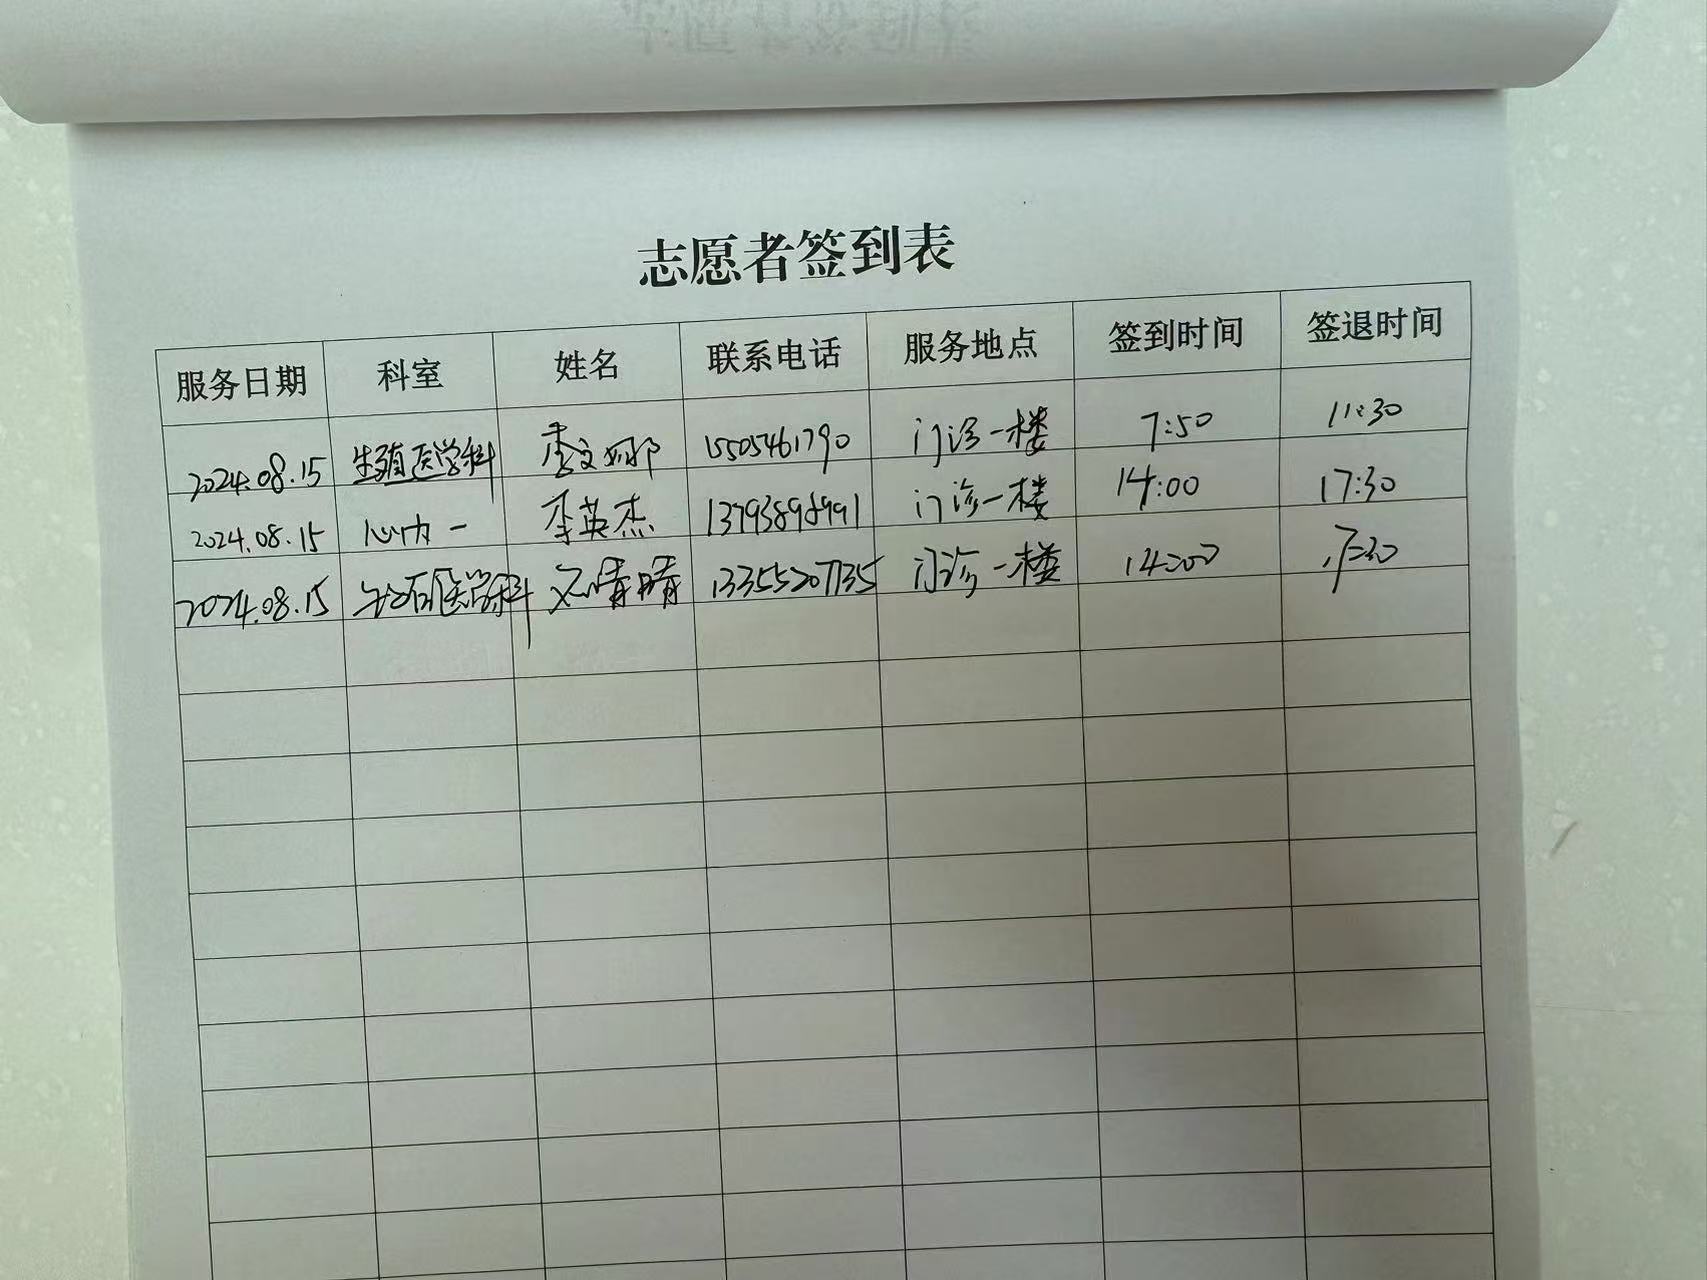 志愿者签到表
服务日期 科室 姓名 联系电话 服务地点 签到时间 签退时间
2024.08.15 生殖医学科 李文娜 15505461790 门诊一楼 7:50 11:30
2024.08.15 心内一 李英杰 门诊一楼 14:00 17:30
2024.08.15 医学科 晴晴 13355207735 门诊一楼 14:00 17:30